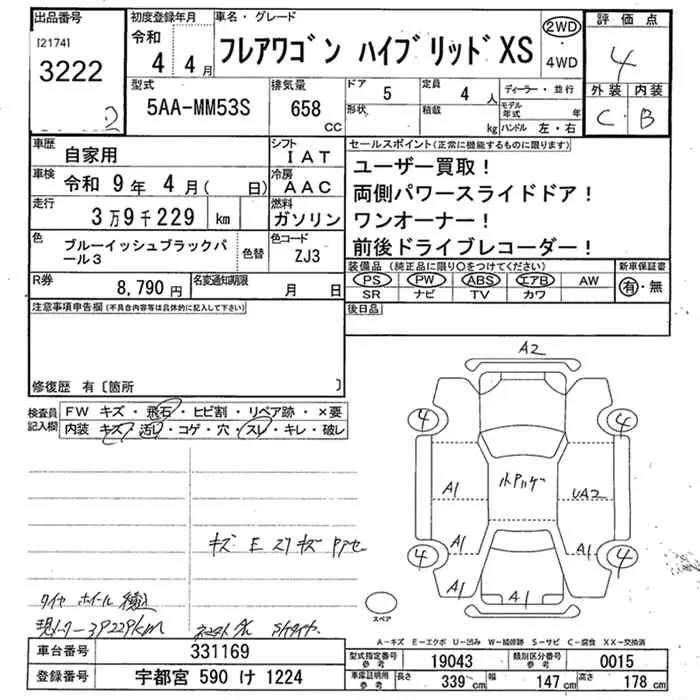 出品番号
[2174]
3222
2
初度登録年月
令和
4 4月
車名・グレード
フレアワゴン ハイブリッドXS
2WD
・
4WD
評価点
4
外装 内装
C B
型式
5AA-MM53S
排気量
658
CC
ドア 5
形状
定員 4 人
積載 kg
ディーラー・並行
モデル年式 年
ハンドル 左・右
車歴 自家用
シフト IAT
車検 令和 9年 4月( 日)
冷房 AAC
走行 3万9千229 km
燃料 ガソリン
色 ブルーイッシュブラックパール3
色替
色コード ZJ3
R券 8,790 円
名変通知期限 月 日
セールスポイント(正常に機能するものに限ります)
ユーザー買取!
両側パワースライドドア!
ワンオーナー!
前後ドライブレコーダー!
装備品(純正品に限り○をつけてください)
新車保証書
PS PW ABS エアB AW
SR ナビ TV カワ
有・無
後日品
注意事項申告欄(不具合内容等は具体的に記入して下さい)
修復歴 有〔箇所 〕
検査員記入欄
FW キズ・飛石・ヒビ割・リペア跡・×要
内装 キズ・汚れ・コゲ・穴・スレ・キレ・破レ
A2
4 4
A1 UA2
4 4
A1 A1
A1 A1
キズ E スリキズ
タイヤ ホイール
39229km
スペア
A-キズ E-エクボ U-凹み W-補修跡 S-サビ C-腐食 XX-交換済
車台番号 331169
登録番号 宇都宮 590 け 1224
型式指定番号 参考 19043
類別区分番号 参考 0015
車庫証明用 参考 長さ 339 cm 幅 147 cm 高さ 178 cm